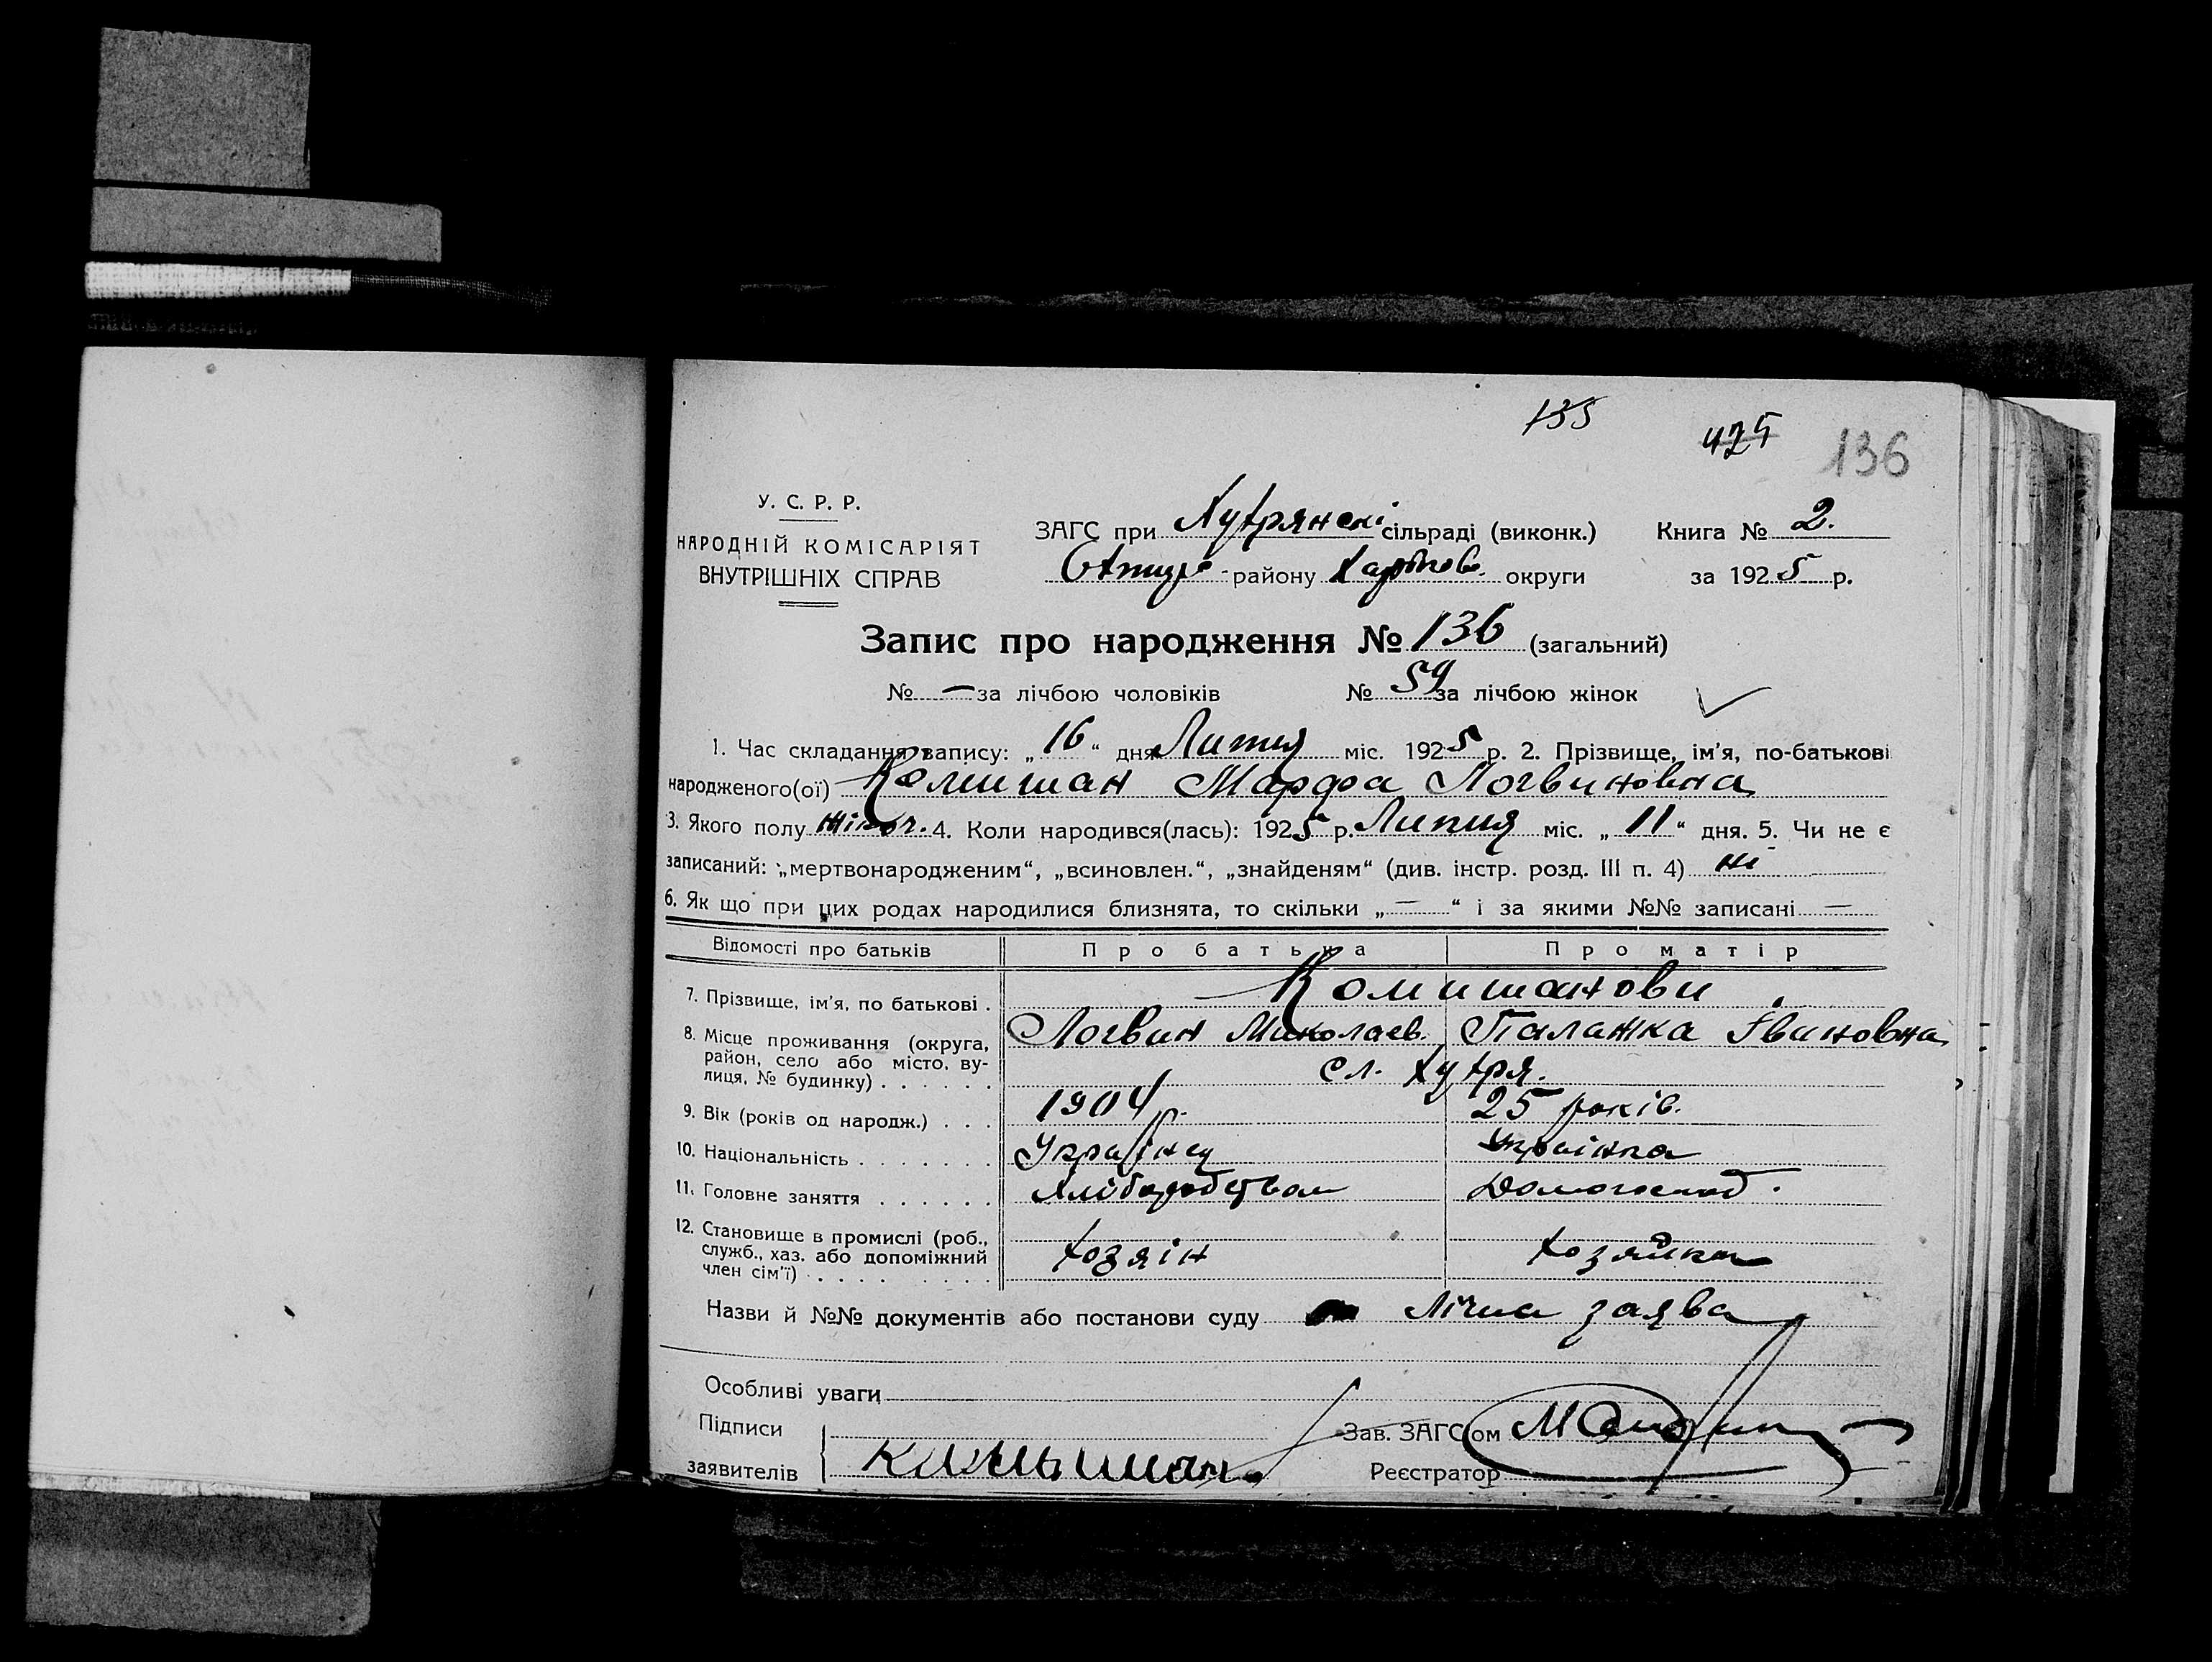 135
425
136
У. С. Р. Р.
НАРОДНІЙ КОМІСАРІЯТ
ВНУТРІШНІХ СПРАВ
ЗАГС при сільраді (виконк.) Книга № 2.
району Харьков. округи за 1925 р.
Запис про народження № 136 (загальний)
№ — за лічбою чоловіків № 59 за лічбою жінок
1. Час складання запису: „16“ дня Липня міс. 1925 р. 2. Прізвище, ім'я, по-батькові
народженого(ої) Комишан Марфа Логвиновна
3. Якого полу жіноч. 4. Коли народився(лась): 1925 р. Липня міс. „11“ дня. 5. Чи не є
записаний: „мертвонародженим“, „всиновлен.“, „знайденям“ (див. інстр. розд. III п. 4) ні
6. Як що при цих родах народилися близнята, то скільки „—“ і за якими №№ записані —
Відомості про батьків Про батька Про матір
7. Прізвище, ім'я, по батькові . Комишанови
Логвин Миколаев. Палажка Івановна
8. Місце проживання (округа, район, село або місто, вулиця, № будинку) . . . . . . сл.
9. Вік (років од народж.) . . . 1904 р. 25 років.
10. Національність . . . . . . . Українец Українка
11. Головне заняття . . . . . . Хліборобством Домогоспод.
12. Становище в промислі (роб., служб., хаз. або допоміжний член сім'ї) . . . . . . . . . Хозяін Хозяйка
Назви й №№ документів або постанови суду Лічна заява
Особливі уваги
Підписи
заявителів Камышан
Зав. ЗАГС'ом
Реєстратор